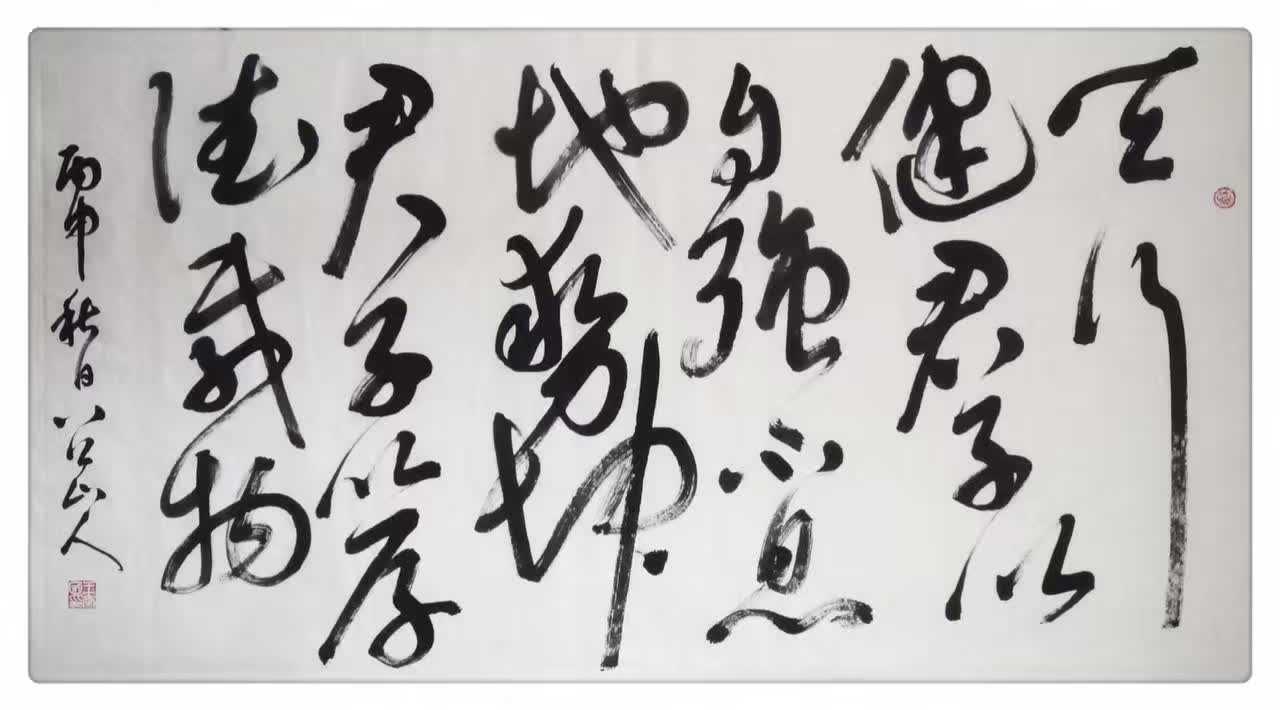 天行
健君子以
自强不息
地勢坤
君子以厚
德載物
丙申秋日八公山人